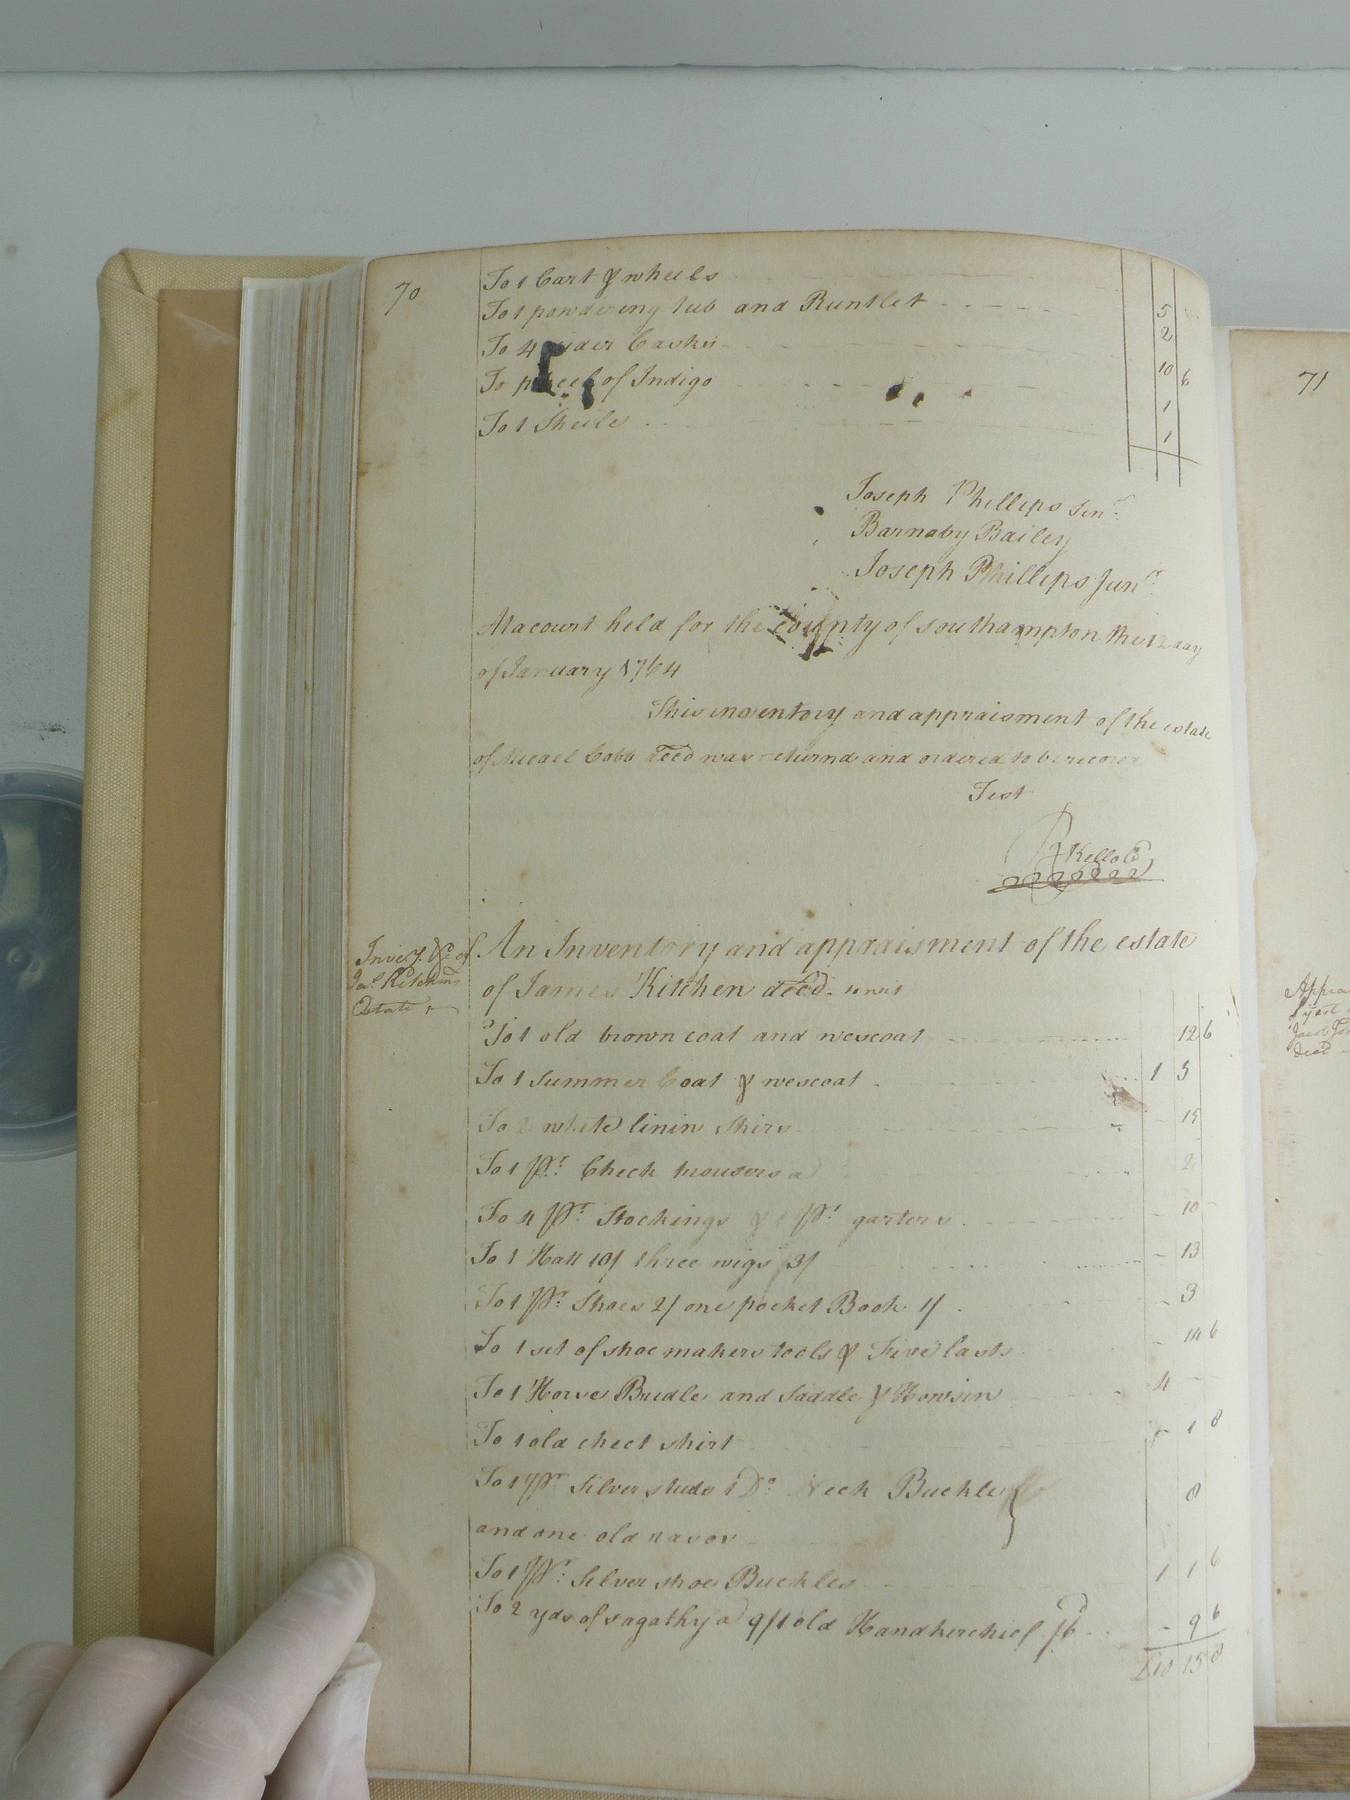 70
To 1 Cart & wheels
To 1 powdering tub and Runtlet 5
To 4 Cyder Casks 2
10 6
To parcel of Indigo 1
To 1 Theele 1
Joseph Phillips Senr.
Barnaby Bailey
Joseph Phillips Junr.
At a court held for the county of Southampton the 12 day
of January 1764
This inventory and appraisment of the estate
of Micael Cobb decd was returnd and ordered to be
Test
R Kello
Inver.y &c. of
Jas. Kitchens
Estate
An Inventory and appraisment of the estate
of James Kitchen decd. to wit
To 1 old brown coat and wescoat 12 6
To 1 Summer Coat & wescoat 1 5
To 2 white linin Shirs 15
To 1 pr. Check trousers 2
To 4 pr. Stockings & pr. garters 10
To 1 Hatt 10/ three wigs 3/ 13
To 1 pr. Shoes 2/ one pocket Book 1/ 3
To 1 set of shoe makers tools & Five lasts 14 6
To 1 Horse Bridle and Saddle & Howsin 4
To 1 old check shirt 1 8
To 1 pr. Silver studs 1 Do. Neck Buckle
and one old rasor 8
To 1 pr. Silver shoe Buckles 1 1 6
To 2 yds of sagathy a 9/ 1 old Handkerchief 6d 9 6
£10 15 8
71